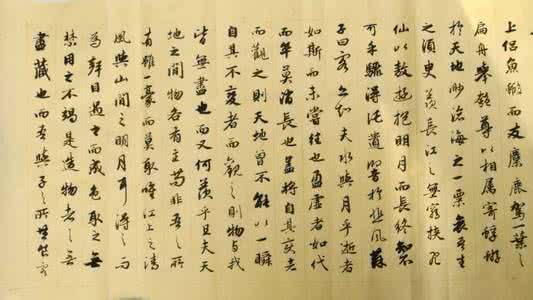 上侶魚鰕而友麋鹿駕一葉之
扁舟舉匏尊以相属寄蜉蝣
於天地渺滄海之一粟哀吾生
之須臾羨長江之無窮挟飛
仙以敖遊抱明月而長終知不
可乎驟得託遺響於悲風蘇
子曰客亦知夫水與月乎逝者
如斯而未嘗往也盈虚者如代
而卒莫消長也蓋將自其變者
而觀之則天地曾不能以一瞬
自其不變者而觀之則物與我
皆無盡也而又何羨乎且夫天
地之間物各有主苟非吾之所
有雖一毫而莫取惟江上之清
風與山間之明月耳得之而
為聲目遇之而成色取之無
禁用之不竭是造物者之無
盡藏也而吾與子之所共食客